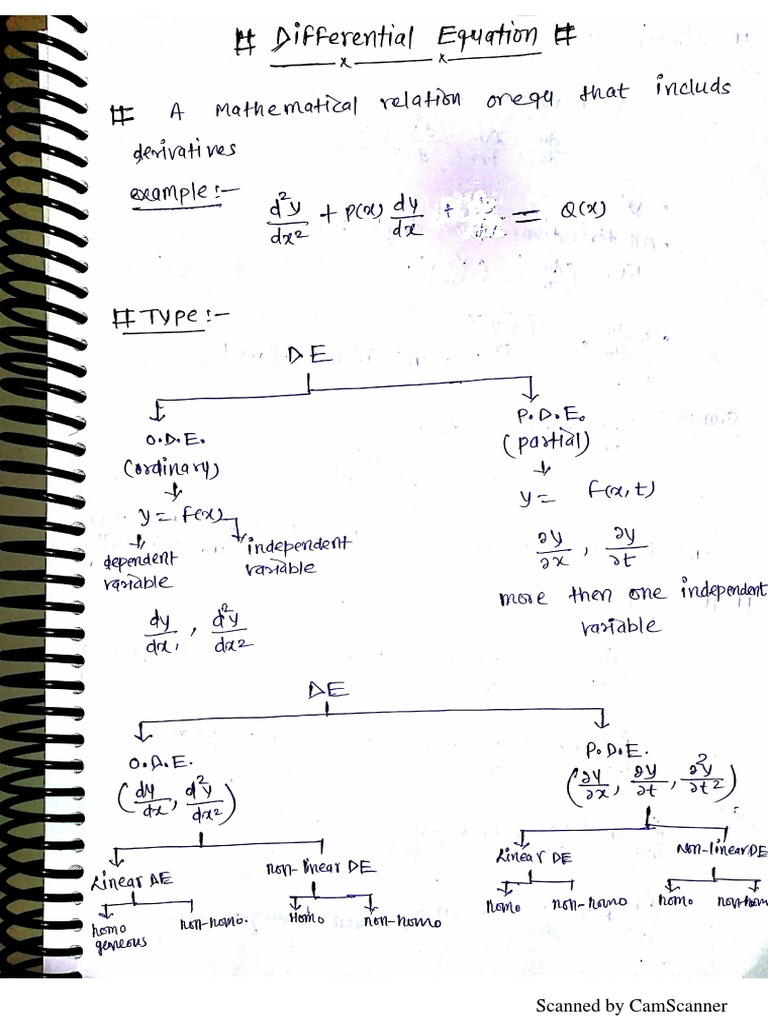 # Differential Equation #
# A Mathematical relation or equ that includs
derivatives
example:-
d²y/dx² + P(x) dy/dx + = Q(x)
# Type:-
DE
O.D.E.
(ordinary)
y = f(x)
dependent variable
independent variable
dy/dx, d²y/dx²
P.D.E.
(partial)
y = f(x,t)
∂y/∂x, ∂y/∂t
more then one independent
variable
DE
O.D.E.
(dy/dx, d²y/dx²)
P.D.E.
(∂y/∂x, ∂y/∂t, ∂²y/∂t²)
Linear DE
non-linear DE
Linear DE
Non-linear DE
homo
geneous
non-homo.
Homo
non-homo
homo
non-homo
homo
non-hom
Scanned by CamScanner